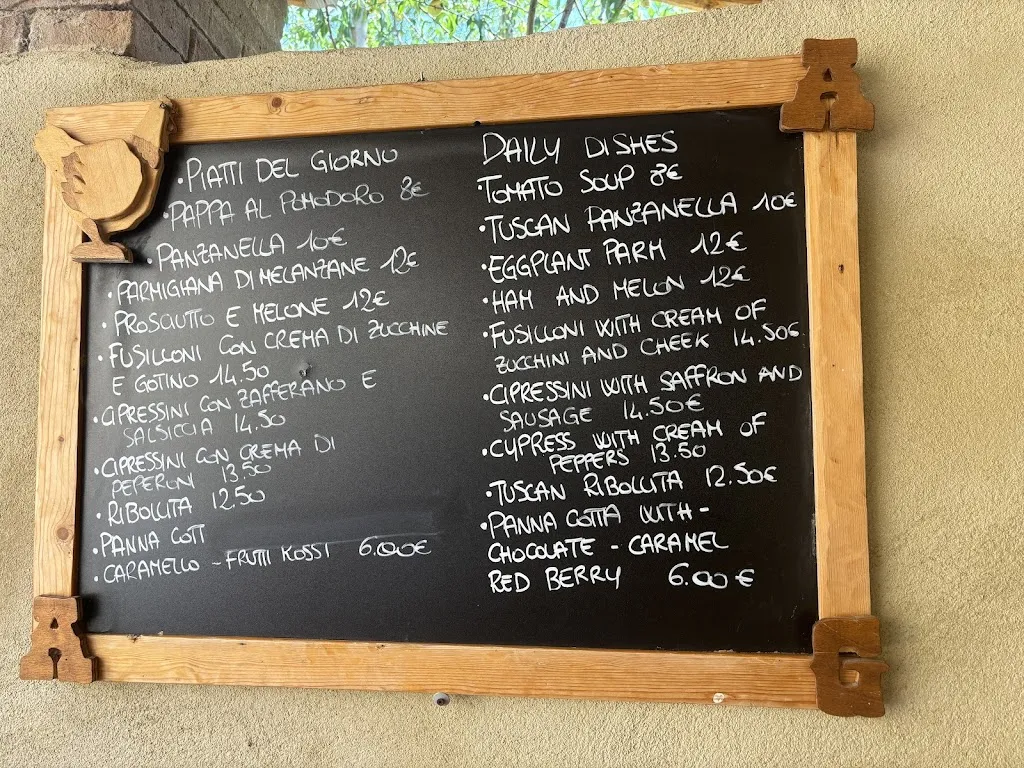 • PIATTI DEL GIORNO
• PAPPA AL POMODORO 8€
• PANZANELLA 10€
• PARMIGIANA DI MELANZANE 12€
• PROSCIUTTO E MELONE 12€
• FUSILLONI CON CREMA DI ZUCCHINE
E GOTINO 14.50
• CIPRESSINI CON ZAFFERANO E
SALSICCIA 14.50
• CIPRESSINI CON CREMA DI
PEPERONI 13.50
• RIBOLLITA 12.50
• PANNA COTT
• CARAMELLO - FRUTTI ROSSI 6.00€
DAILY DISHES
• TOMATO SOUP 8€
• TUSCAN PANZANELLA 10€
• EGGPLANT PARM 12€
• HAM AND MELON 12€
• FUSILLONI WITH CREAM OF
ZUCCHINI AND CHEEK 14.50€
• CIPRESSINI WITH SAFFRON AND
SAUSAGE 14.50€
• CYPRESS WITH CREAM OF
PEPPERS 13.50
• TUSCAN RIBOLLITA 12.50€
• PANNA COTTA WITH -
CHOCOLATE - CARAMEL
RED BERRY 6.00€
A
A
G